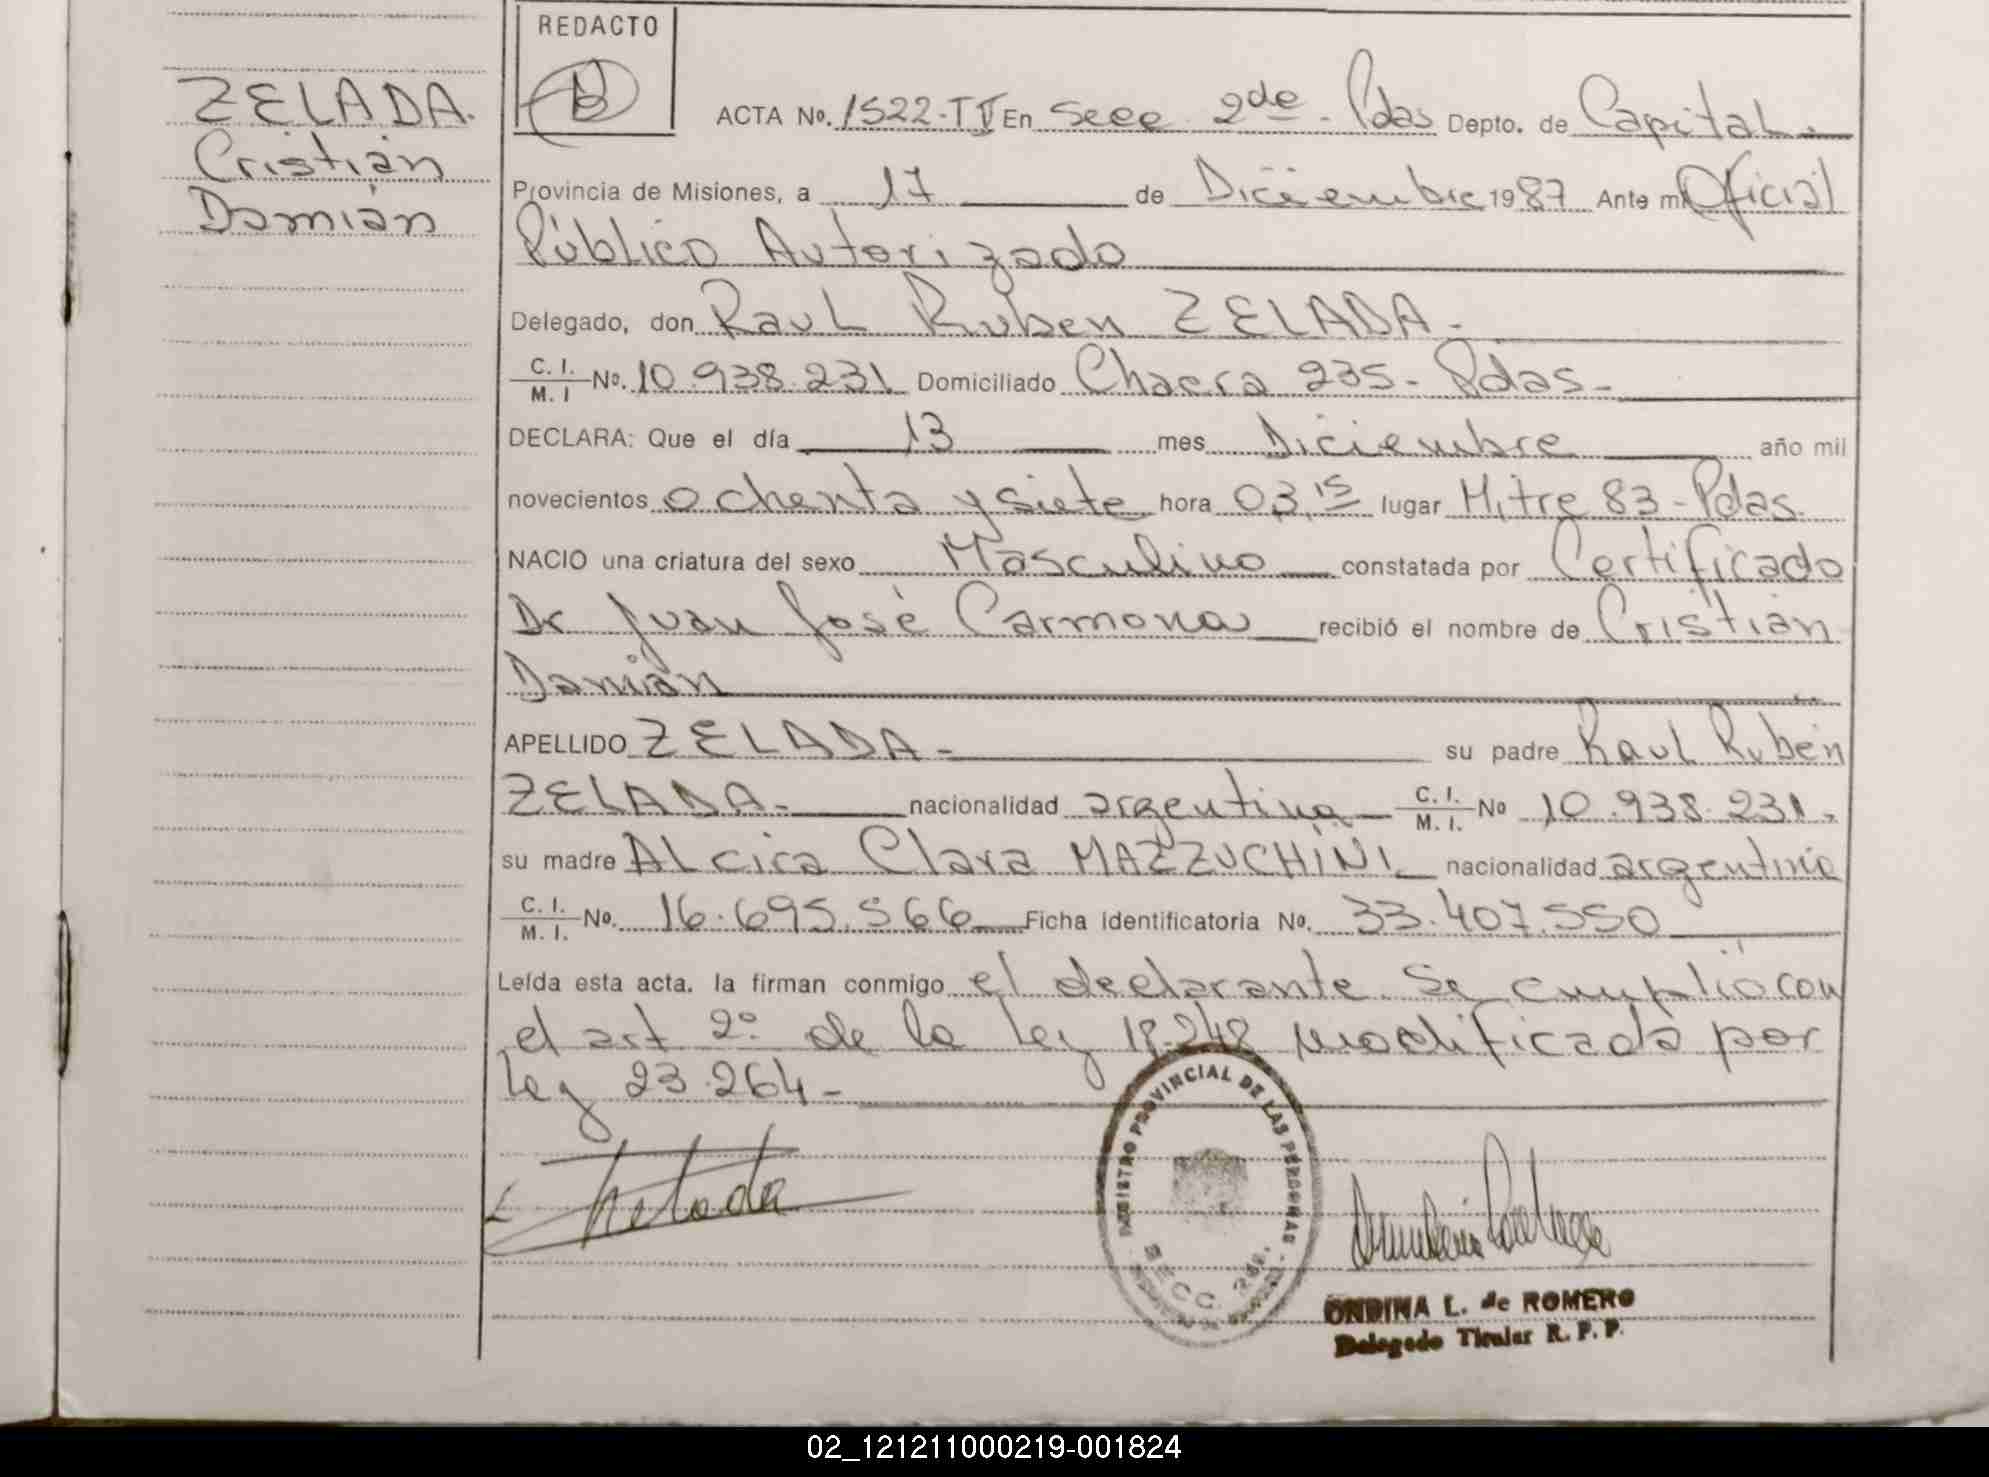 REDACTO
ZELADA.
Cristián
Damián
ACTA Nº. 1522-TV En Secc 2de - Pdas Depto. de Capital.
Provincia de Misiones, a 17 de Diciembre 1987 Ante mi Oficial
Público Autorizado
Delegado, don Raul Ruben ZELADA.
C. I. / M. I Nº. 10.938.231. Domiciliado Chacra 235- Pdas-
DECLARA: Que el día 13 mes Diciembre año mil
novecientos ochenta y siete hora 03,15 lugar Mitre 83-Pdas.
NACIO una criatura del sexo Masculino constatada por Certificado
Dr Juan José Carmona recibió el nombre de Cristián
Damián
APELLIDO ZELADA- su padre Raul Rubén
ZELADA- nacionalidad argentina C. I. / M. I. Nº 10.938.231.
su madre ALcira Clara MAZZUCHINI nacionalidad argentina
C. I. / M. I. Nº. 16.695.566 Ficha identificatoria Nº. 33.407.550
Leída esta acta. la firman conmigo el declarante. Se cumplió con
el art 2º de la Ley 18.248 modificada por
Ley 23.264-
Zelada
REGISTRO PROVINCIAL DE LAS PERSONAS
SECC. 2da.
ONDINA L. de ROMERO
Delegado Titular R. P. P.
02_121211000219-001824